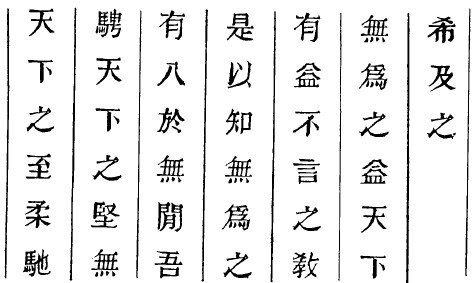 天下之至柔馳
騁天下之堅無
有入於無閒吾
是以知無爲之
有益不言之敎
無爲之益天下
希及之